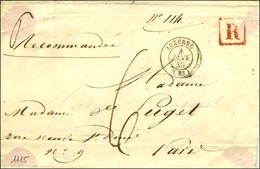 N° 114
R
Recommandée
AUXERRE
Madame
Madame Puget
rue neuve St Denis
N° 9 Paris
1115